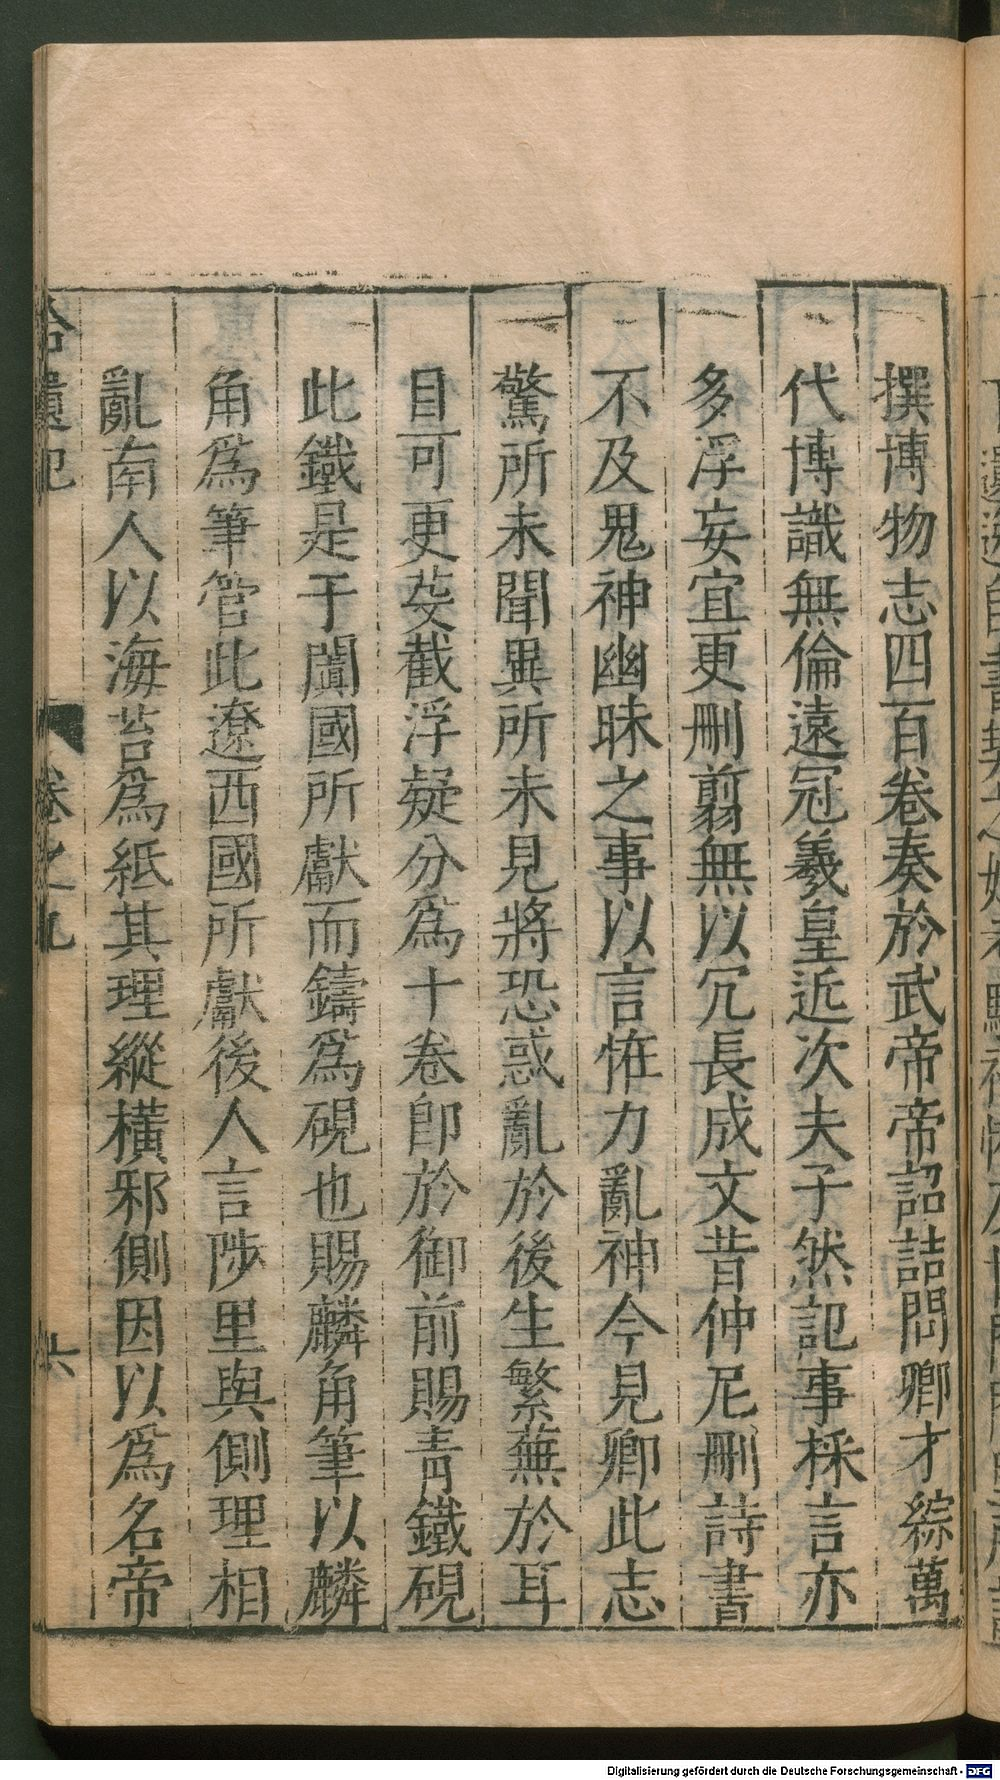 撰博物志四百卷奏於武帝帝詔詰問卿才綜萬
代博識無倫遠冠羲皇近次夫子然記事採言亦
多浮妄宜更刪翦無以冗長成文昔仲尼刪詩書
不及鬼神幽昧之事以言怪力亂神今見卿此志
驚所未聞異所未見將恐惑亂於後生繁蕪於耳
目可更芟截浮疑分為十卷即於御前賜青鐵硯
此鐵是于闐國所獻而鑄為硯也賜麟角筆以麟
角為筆管此遼西國所獻後人言陟里與側理相
亂南人以海苔為紙其理縱橫邪側因以為名帝
拾遺記 卷之九 六
Digitalisierung gefördert durch die Deutsche Forschungsgemeinschaft - DFG